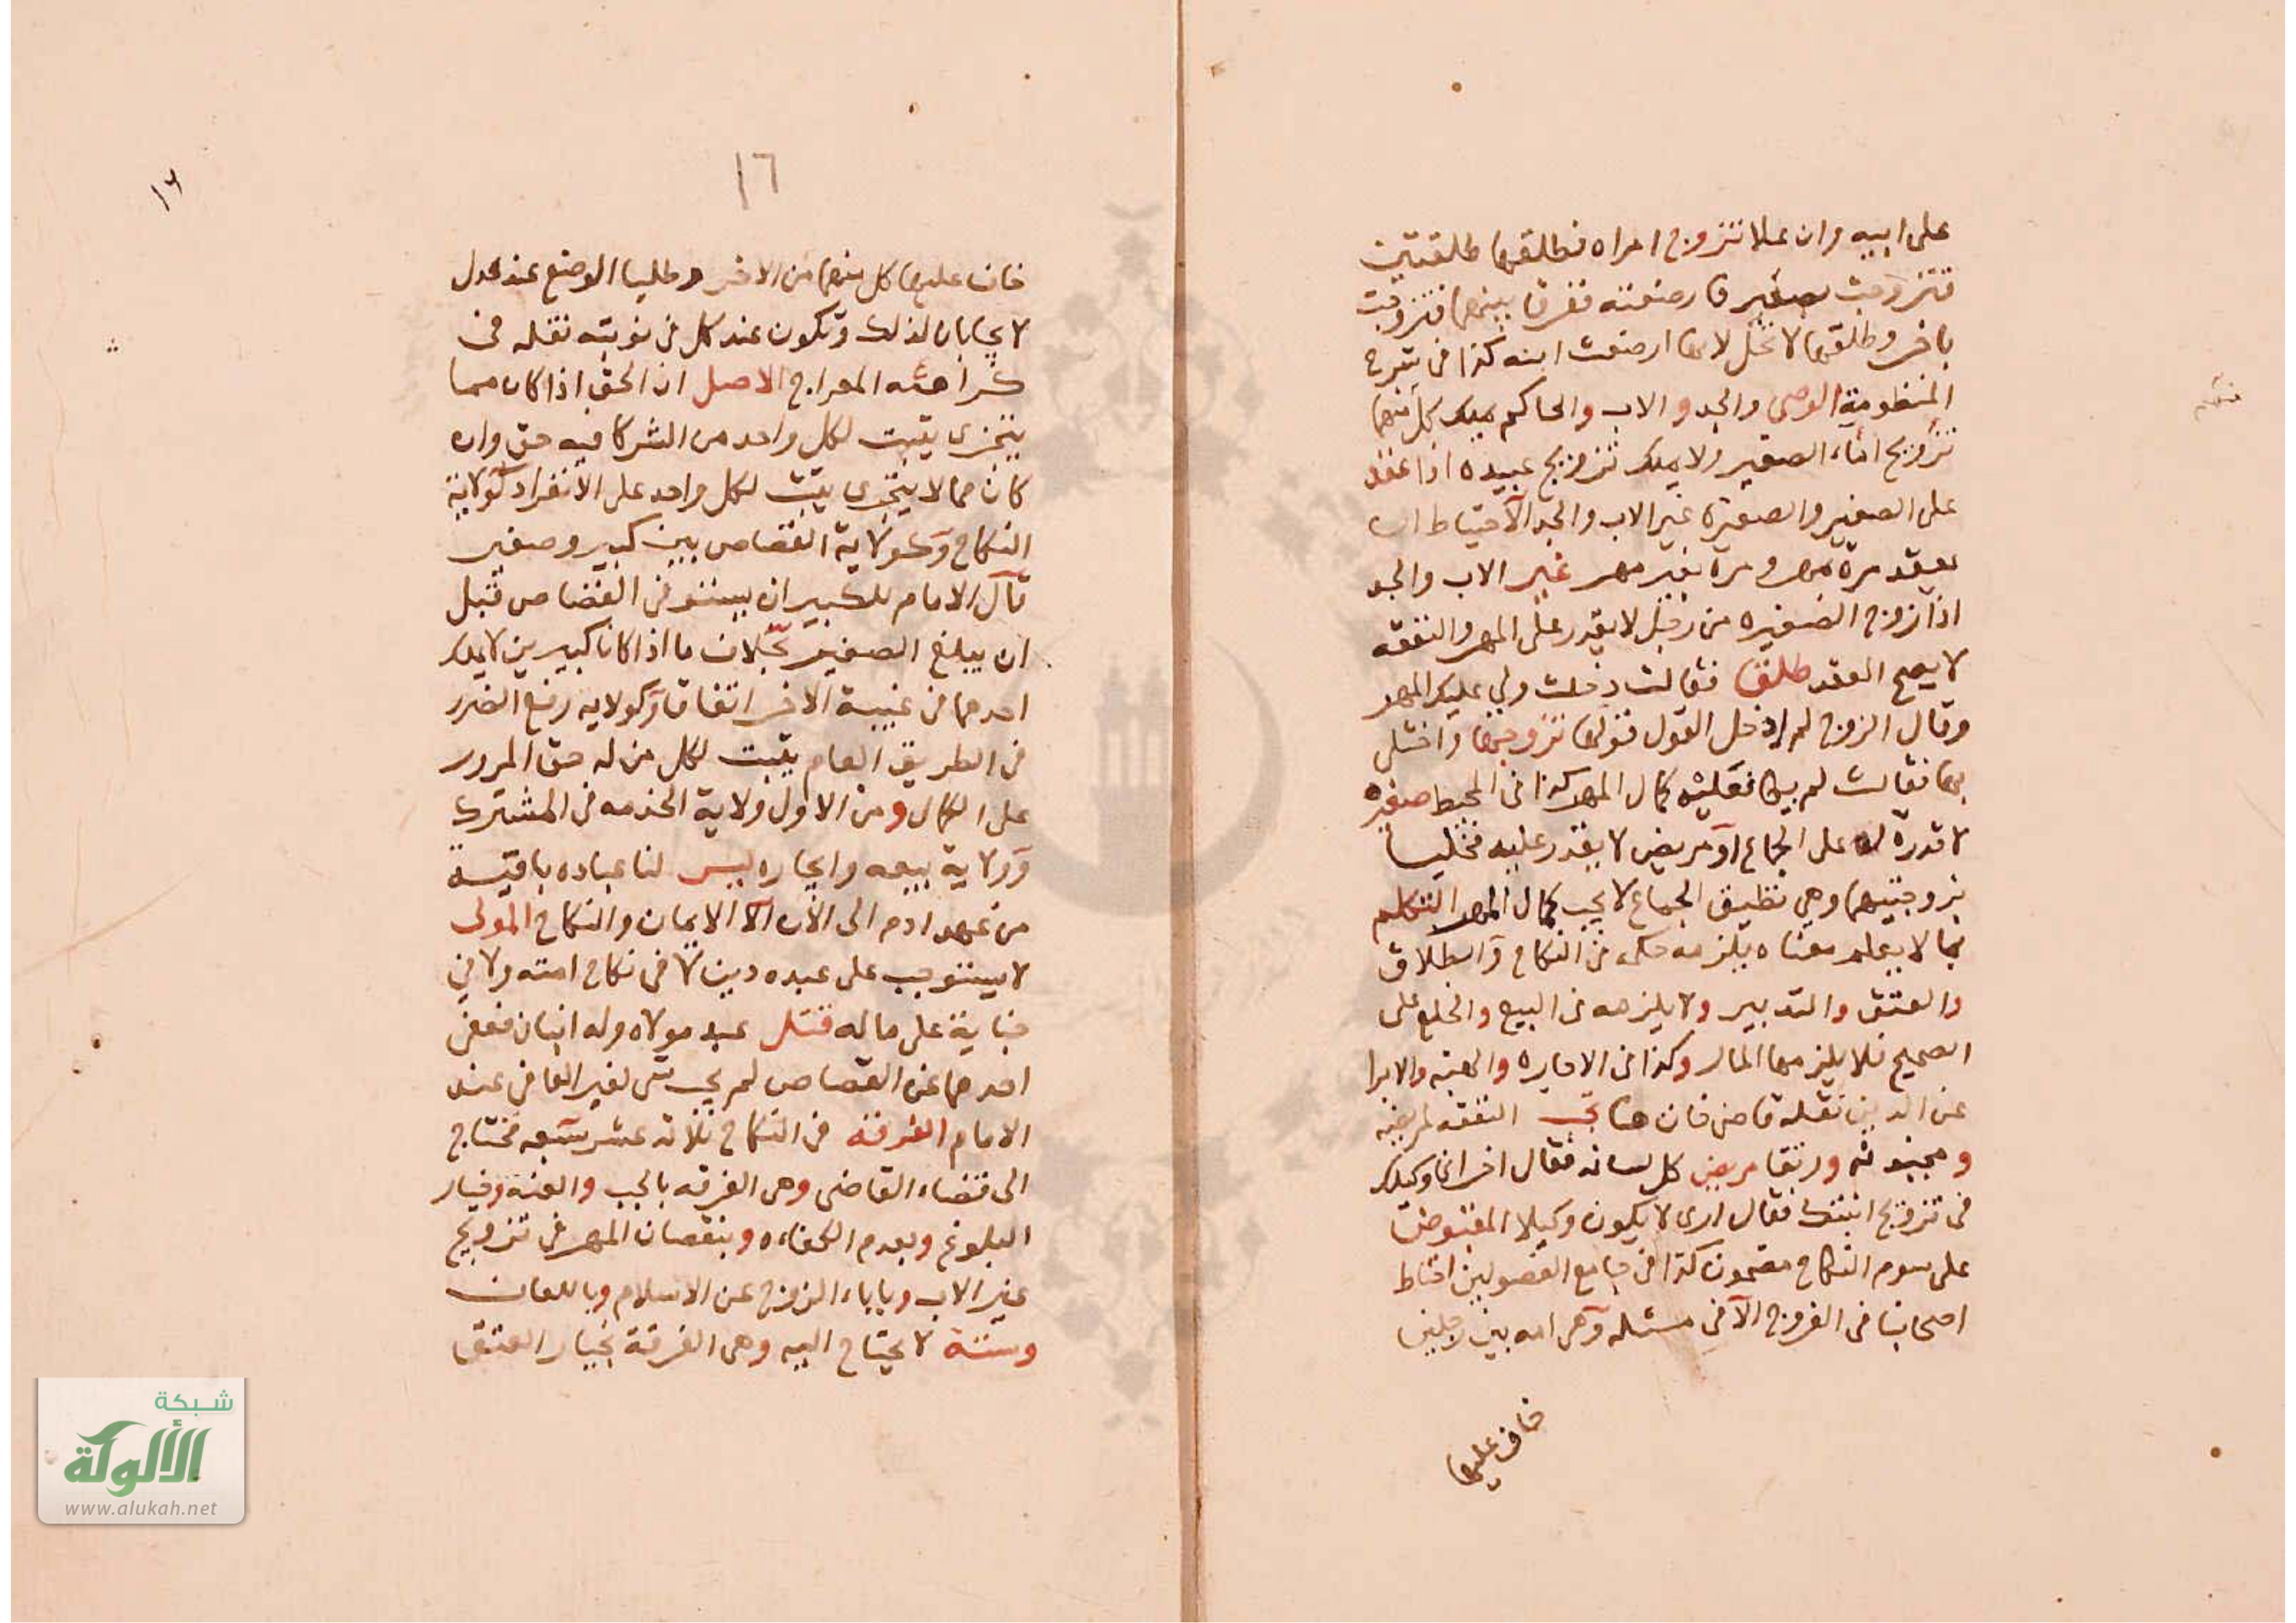 على ابيه وان علا تزوج امراه فطلقها طلقتين
فتزوجت بصغير فارضعته ففرق بينهما فتزوجت
باخر وطلقها لا تحل لانها ارضعت ابنه كذا في شرح
المنظومة الوصى والجد والاب والحاكم يملك كل منهم
تزويج اماء الصغير ولا يملك تزويج عبيده اذا عقد
على الصغير والصغيرة غير الاب والجد الاحتياط ان
يعقد مرة بمهر ومرة بغير مهر غير الاب والجد
اذا زوج الصغيره من رجل لا يقدر على المهر والنفقه
لا يصح العقد طلق فقالت دخلت ولي عليك المهر
وقال الزوج لم ادخل القول قولها تزوجها واختلى
بها فقالت لم يطأ فعليه كمال المهر كذا في المحيط صغيره
لا قدرة له على الجماع او مريض لا يقدر عليه فخليا
بزوجتيهما وهي تطيق الجماع لا يجب كمال المهر التكلم
بما لا يعلم معناه يلزمه حكمه في النكاح والطلاق
والعتق والتدبير ولا يلزمه في البيع والخلع على
الصحيح فلا يلزمها المال وكذا في الاجاره والهبه والابرا
عن الدين نقله قاضى خان هنا تجب النفقه لمريضه
ومجنونه ورتقا مريض كل لسانه فقال اخر انا وكيلك
في تزويج ابنتك فقال ارى لا يكون وكيلا المقبوض
على سوم النكاح مضمون كذا في جامع الفصولين احتاط
اصحابنا في الفروج الا في مسئله وهي امه بين رجلين
خاف عليها
١٦
١٦
خاف عليها كل منهما من الاخر وطلبا الوضع عند عدل
لا يجابان لذلك وتكون عند كل في نوبته نقله في
كراهته المعراج الاصل ان الحق اذا كان مما
يتجزى يثبت لكل واحد من الشركا فيه حق وان
كان مما لا يتجزى يثبت لكل واحد على الانفراد كولاية
النكاح وكولاية القصاص بين كبير وصغير
قال الامام للكبير ان يستوفى القصاص قبل
ان يبلغ الصغير بخلاف ما اذا كانا كبيرين لا يملك
احدهما في غيبة الاخر اتفاقا وكولايه رفع الضرر
في الطريق العام يثبت لكل من له حق المرور
على الكمال ومن الاول ولاية الخدمه في المشترك
وولاية بيعه وايجاره ليس لنا عباده باقية
من عهد ادم الى الان الا الايمان والنكاح المولى
لا يستوجب على عبده دين لا في نكاح امته ولا في
جناية على ماله قتل عبد مولاه وله ابنان فعفى
احدهما عن القصاص لم يجب شى لغير العافى عند
الامام الفرقة في النكاح ثلاثه عشر سبعه تحتاج
الى قضاء القاضى وهي الفرقه بالجب والعنه وخيار
البلوغ وبعدم الكفاءه وبنقصان المهر في تزويج
غير الاب وباباء الزوج عن الاسلام وباللعان
وستة لا يحتاج اليه وهي الفرقة بخيار العتق
شبكة
الألوكة
www.alukah.net